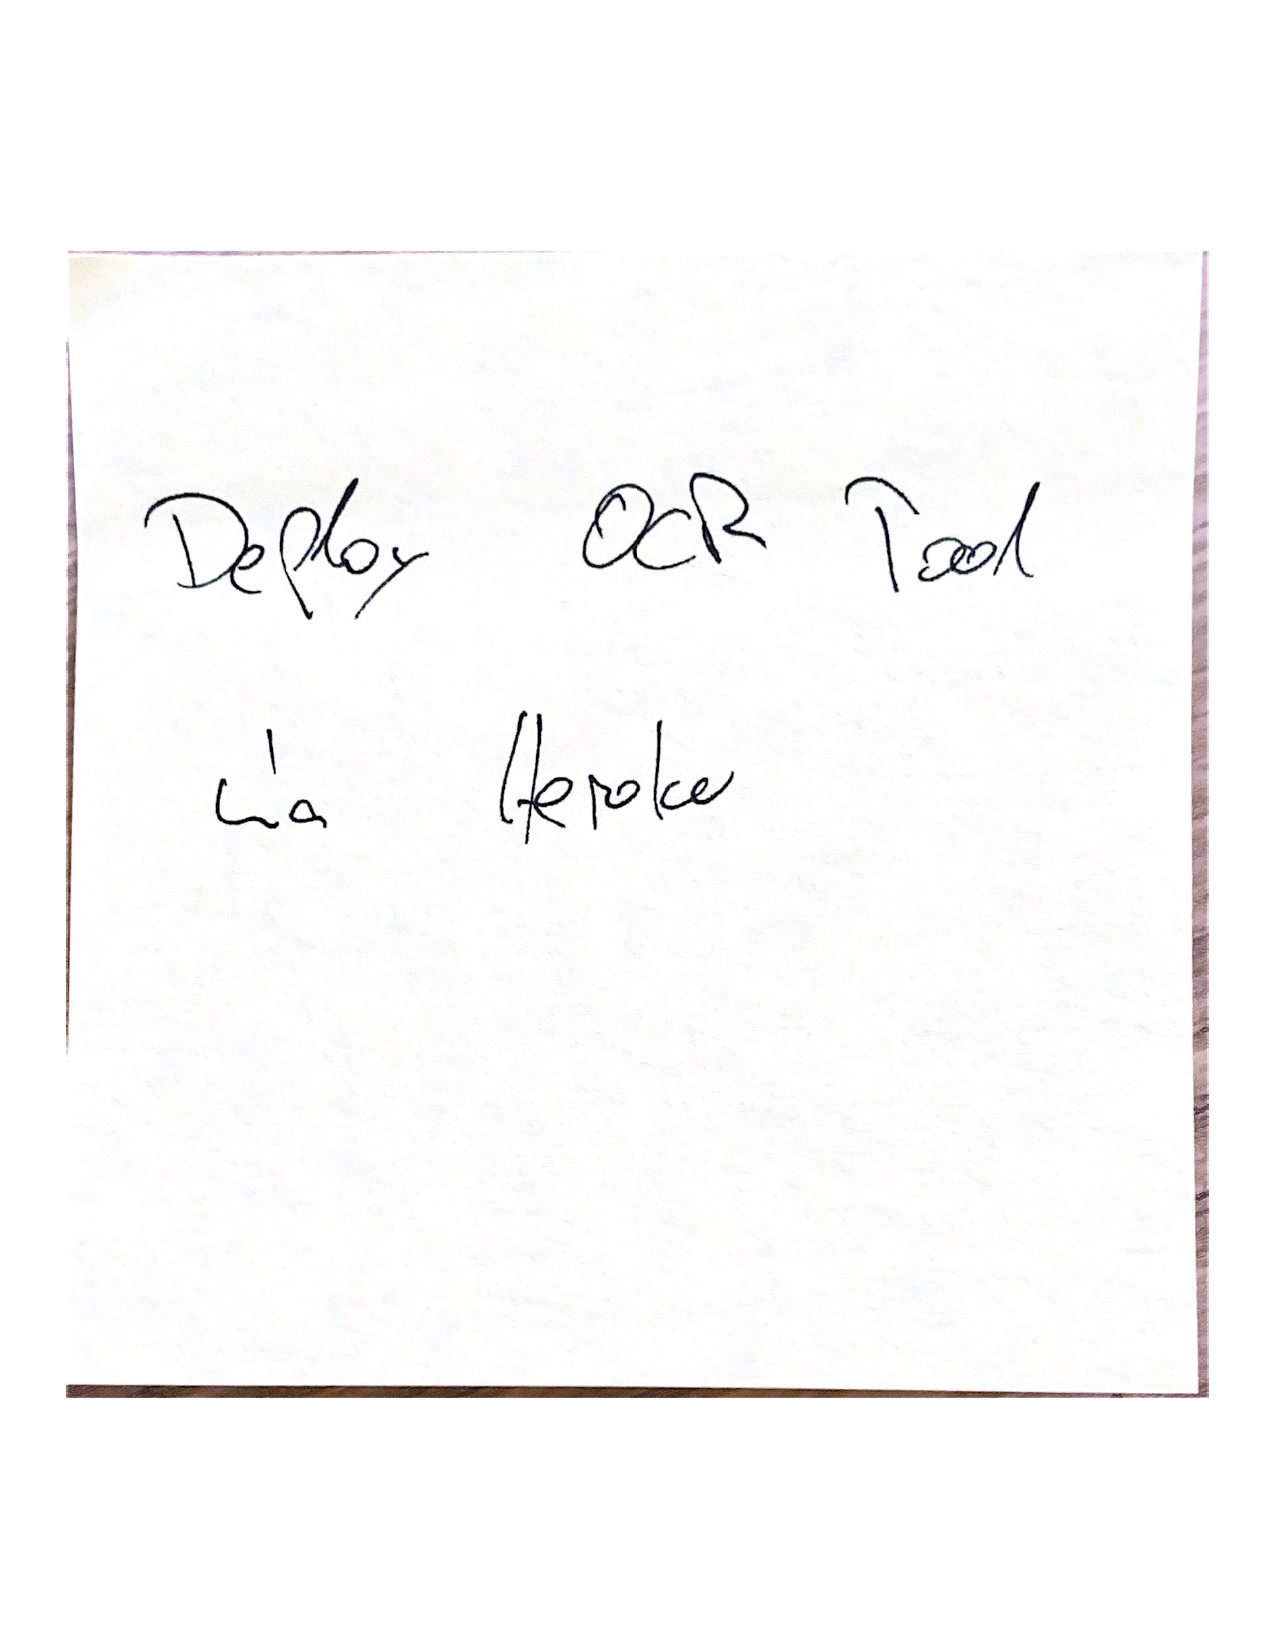 Deploy OCR Tool
via Heroku